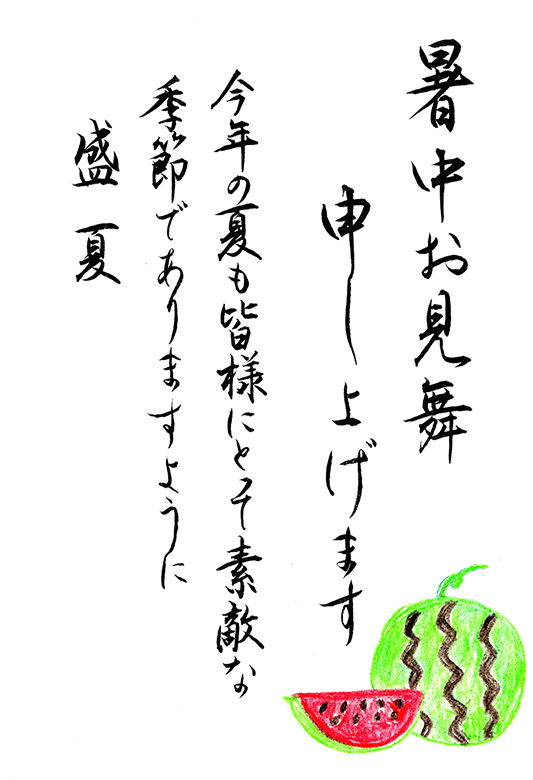 暑中お見舞
申し上げます
今年の夏も皆様にとって素敵な
季節でありますように
盛夏